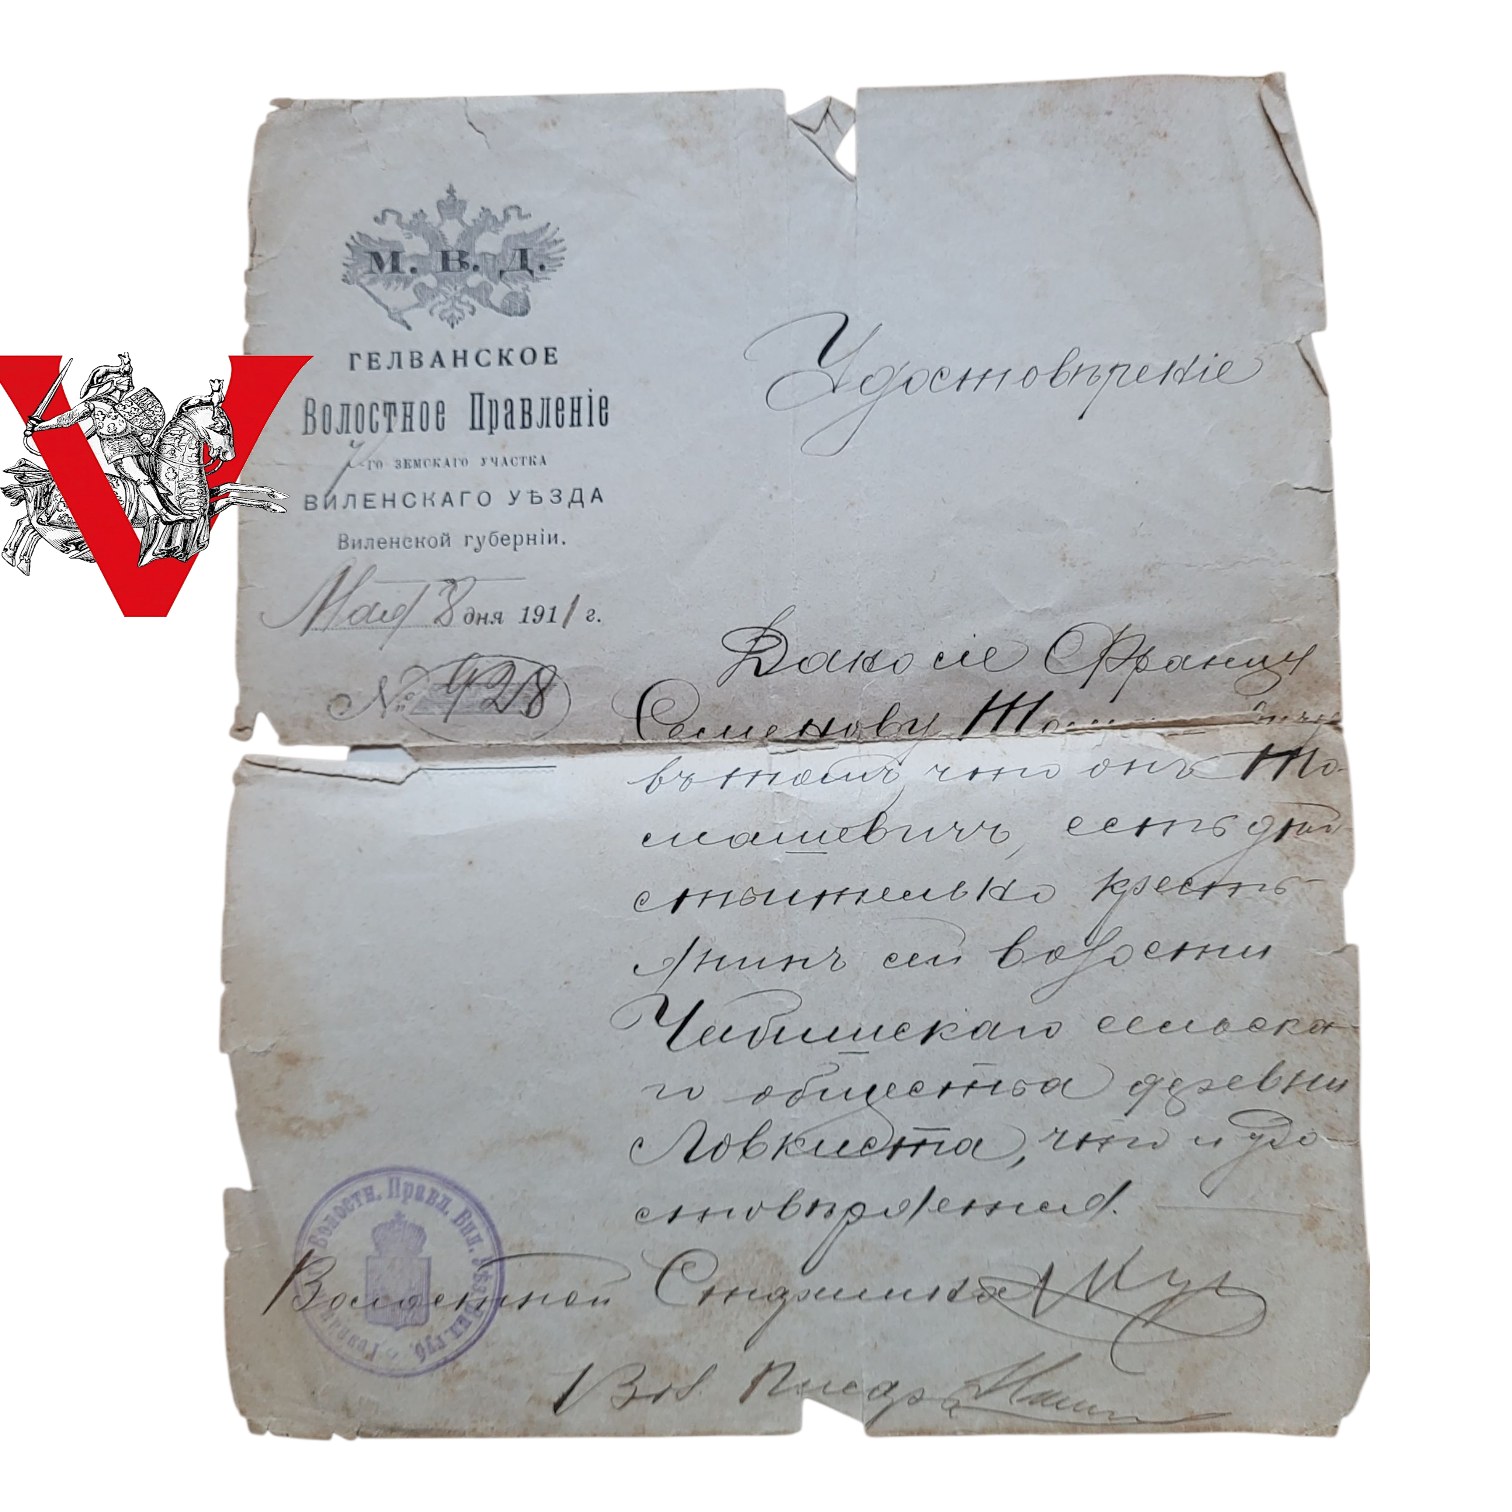 М. В. Д.
ГЕЛВАНСКОЕ
Волостное Правленіе
7-го ЗЕМСКАГО УЧАСТКА
ВИЛЕНСКАГО УѢЗДА
Виленской губерніи.
Мая 8 дня 1911 г.
№ 428
Удостовѣреніе
Дано сіе Францу
Семенову
въ томъ, что онъ То-
машевичъ, есть дѣй-
ствительно кресть-
янинъ сей волости
Чибишскаго сельска-
го общества деревни
Ловкиста, что и удо-
стовѣряется.
Волостной Старшина
Вол. Писарь
Волостн. Правл. Вил. Уѣзда Вил. губ.
V